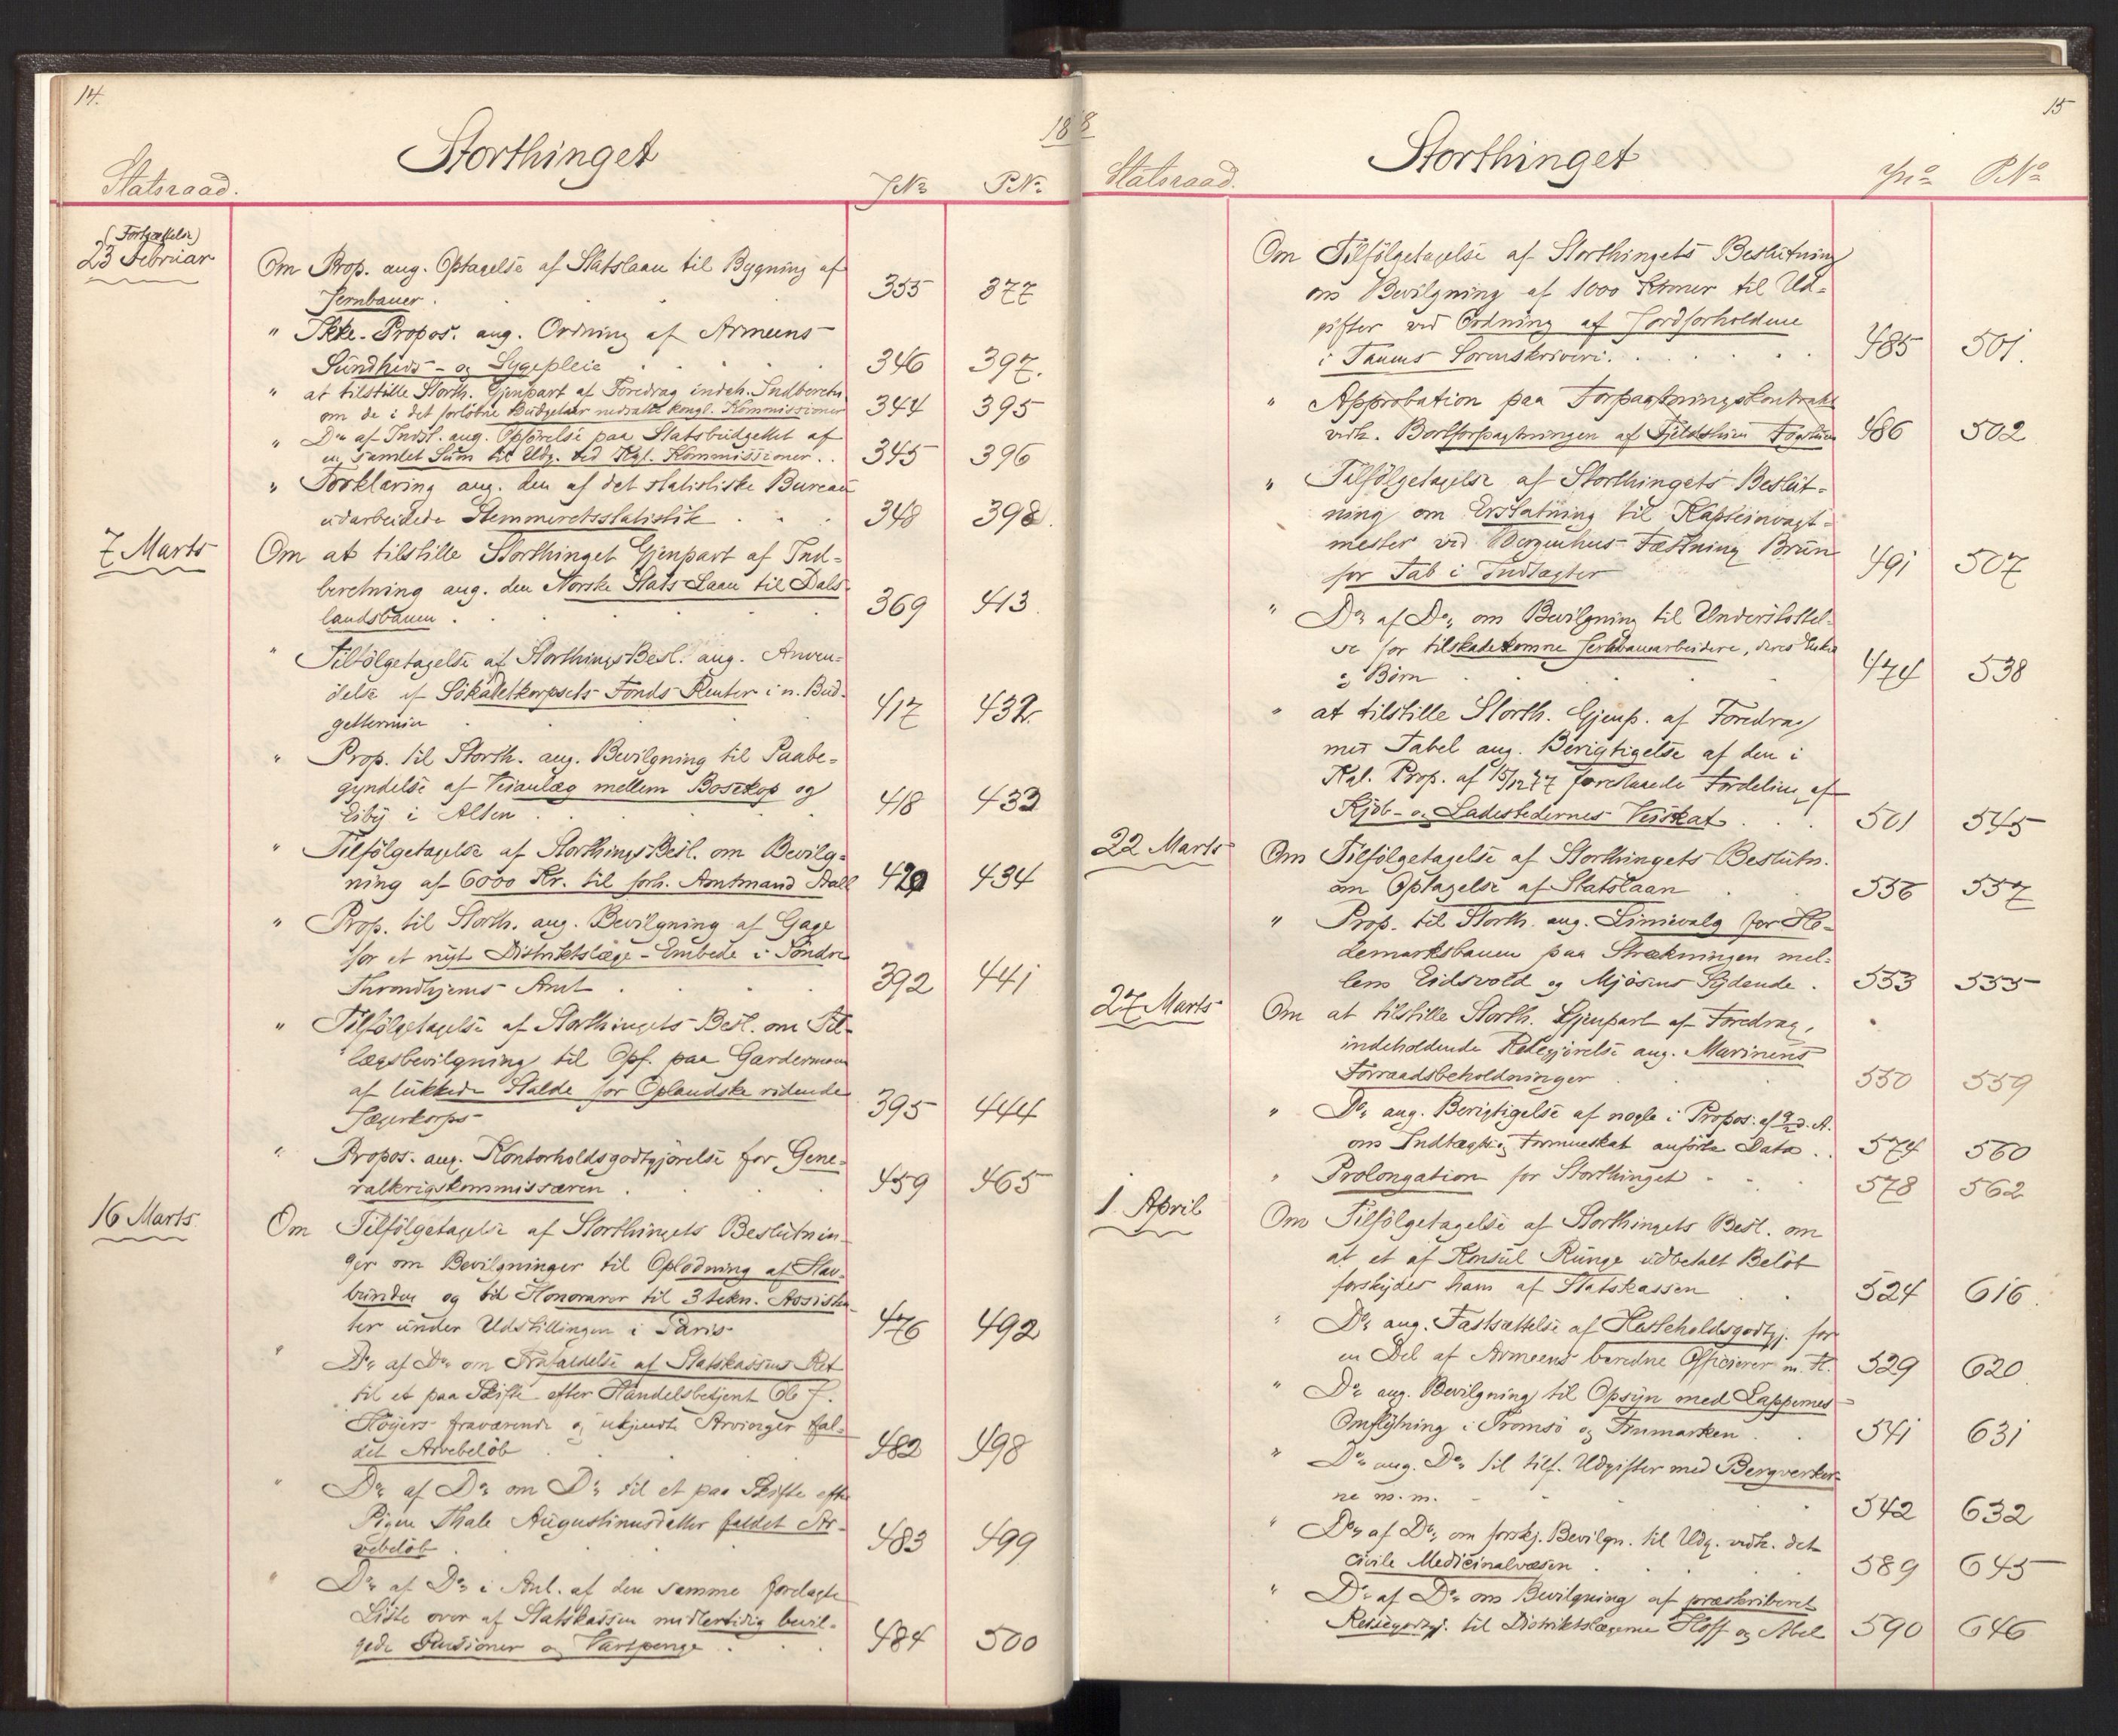 14.
Storthinget
18
Statsraad.
J№
P.№
(Fortsættelse)
23 Februar
Om Prop. ang. Optagelse af Statslaan til Bygning af
Jernbaner. 355 377
" Ikke-Propos. ang. Ordning af Armeens
Sundheds- og Sygepleie 346 397.
" at tilstille Storth. Gjenpart af Foredrag indeh. Indberetn.
om de i det forløbne Budgetaar nedsatte kongl. Kommissioner 344 395
" Do af Indst. ang. Opførelse paa Statsbudgettet af
en samlet Sum til Udg. ved Kgl. Kommissioner.. 345 396
" Forklaring ang. den af det statistiske Bureau
udarbeidede Stemmeretsstatistik 348 398.
7 Marts
Om at tilstille Storthinget Gjenpart af Ind-
beretning ang. den Norske Stats Laan til Dals-
landsbanen. 369 413.
" Tilfölgetagelse af Storthings Besl. ang. Anven-
delse af Sökadetkorpsets Fonds Renter i n. Bud-
gettermin 417 432.
" Prop. til Storth. ang. Bevilgning til Paabe-
gyndelse af Veianlæg mellem Bosekop og
Eiby i Alten 418 433
" Tilfölgetagelse af Storthings Besl. om Bevilg-
ning af 6000 Kr. til forh. Amtmand Aall 420 434
" Prop. til Storth. ang. Bevilgning af Gage
for et nyt Distriktslæge-Embede i Söndre
Throndhjems Amt 392 441
" Tilfölgetagelse af Storthingets Besl. om Til-
lægsbevilgning til Opf. paa Gardermoen
af lukkede Stalde for Oplandske ridende
Jægerkorps 395 444
" Propos. ang. Kontorholdsgodtgjörelse for Gene-
ralkrigskommissæren 459 465
16 Marts
Om Tilfölgetagelse af Storthingets Beslutnin-
ger om Bevilgninger til Oplodning af Hav-
bunden og til Honorarer til 3 tekn. Assisten-
ter under Udstillingen i Paris 476 492
" Do af Do om Frafaldelse af Statskassens Ret
til et paa Skifte efter Handelsbetjent Ole J.
Höyers fraværende og ukjendte Arvinger fal-
det Arvebelöb 482 498
" Do af Do om Do til et paa Skifte efter
Pigen Thale Augustinusdatter faldet Ar-
vebelöb 483 499
" Do af Do i Anl. af den samme forelagte
Liste over af Statskassen midlertidig bevil-
gede Pensioner og Vartpenge 484 500
15
Storthinget
8
Statsraad.
J№
P.№
Om Tilfölgetagelse af Storthingets Beslutning
om Bevilgning af 1000 Kroner til Ud-
gifter ved Ordning af Jordforholdene
i Tanens Sorenskriveri. 485 501.
" Approbation paa Forpagtningskontrakt
vedk. Bortforpagtningen af Fjeldstuen 486 502
" Tilfölgetagelse af Storthingets Beslut-
ning om Erstatning til Kapteinvagt-
mester ved Bergenhus Fæstning Brun
for Tab i Indtægter 491 507
" Do af Do om Bevilgning til Understöttel-
se for tilskadekomne Jernbanearbeidere, deres Enker
og Börn 474 538
" at tilstille Storth. Gjenp. af Foredrag
med Tabel ang. Berigtigelse af den i
Kgl. Prop. af 15/12 77 foreslaaede Fordeling af
Kjöb- og Ladestedernes Veiskat 501 545
22 Marts
Om Tilfölgetagelse af Storthingets Beslutn.
om Optagelse af Statslaan 556 557
" Prop. til Storth. ang. Linievalg for He-
demarksbanen paa Strækningen mel-
lem Eidsvold og Mjösens Sydende. 553 555
27 Marts
Om at tilstille Storth. Gjenpart af Foredrag,
indeholdende Redegjörelse ang. Marinens
Forraadsbeholdninger 550 559
" Do ang. Berigtigelse af nogle i Propos. af 9/2 d. A.
om Indtægts og Formueskat anförte Data.. 574 560
" Prolongation for Storthinget 578 562
1. April
Om Tilfölgetagelse af Storthingets Besl. om
at et af Konsul Runge udbetalt Belöb
forskydes ham af Statskassen 524 616.
" Do ang. Fastsættelse af Hesteholdsgodtgj. for
en Del af Armeens beredne Officierer m. Fl. 529 620
" Do ang. Bevilgning til Opsyn med Lappernes
Omflytning i Tromsö og Finmarken 541 631
" Do ang. Do til tilf. Udgifter med Bergverker-
ne m. m. 542 632
" Do af Do om forskj. Bevilgn. til Udg. vedk. det
civile Medicinalvæsen 589 645
" Do af Do om Bevilgning af præskriberet
Reisegodtgj. til Distriktslægerne Hoff og Abel 590 646